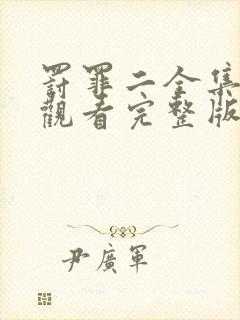 罰罪二全集
觀看完整版
尹廣軍